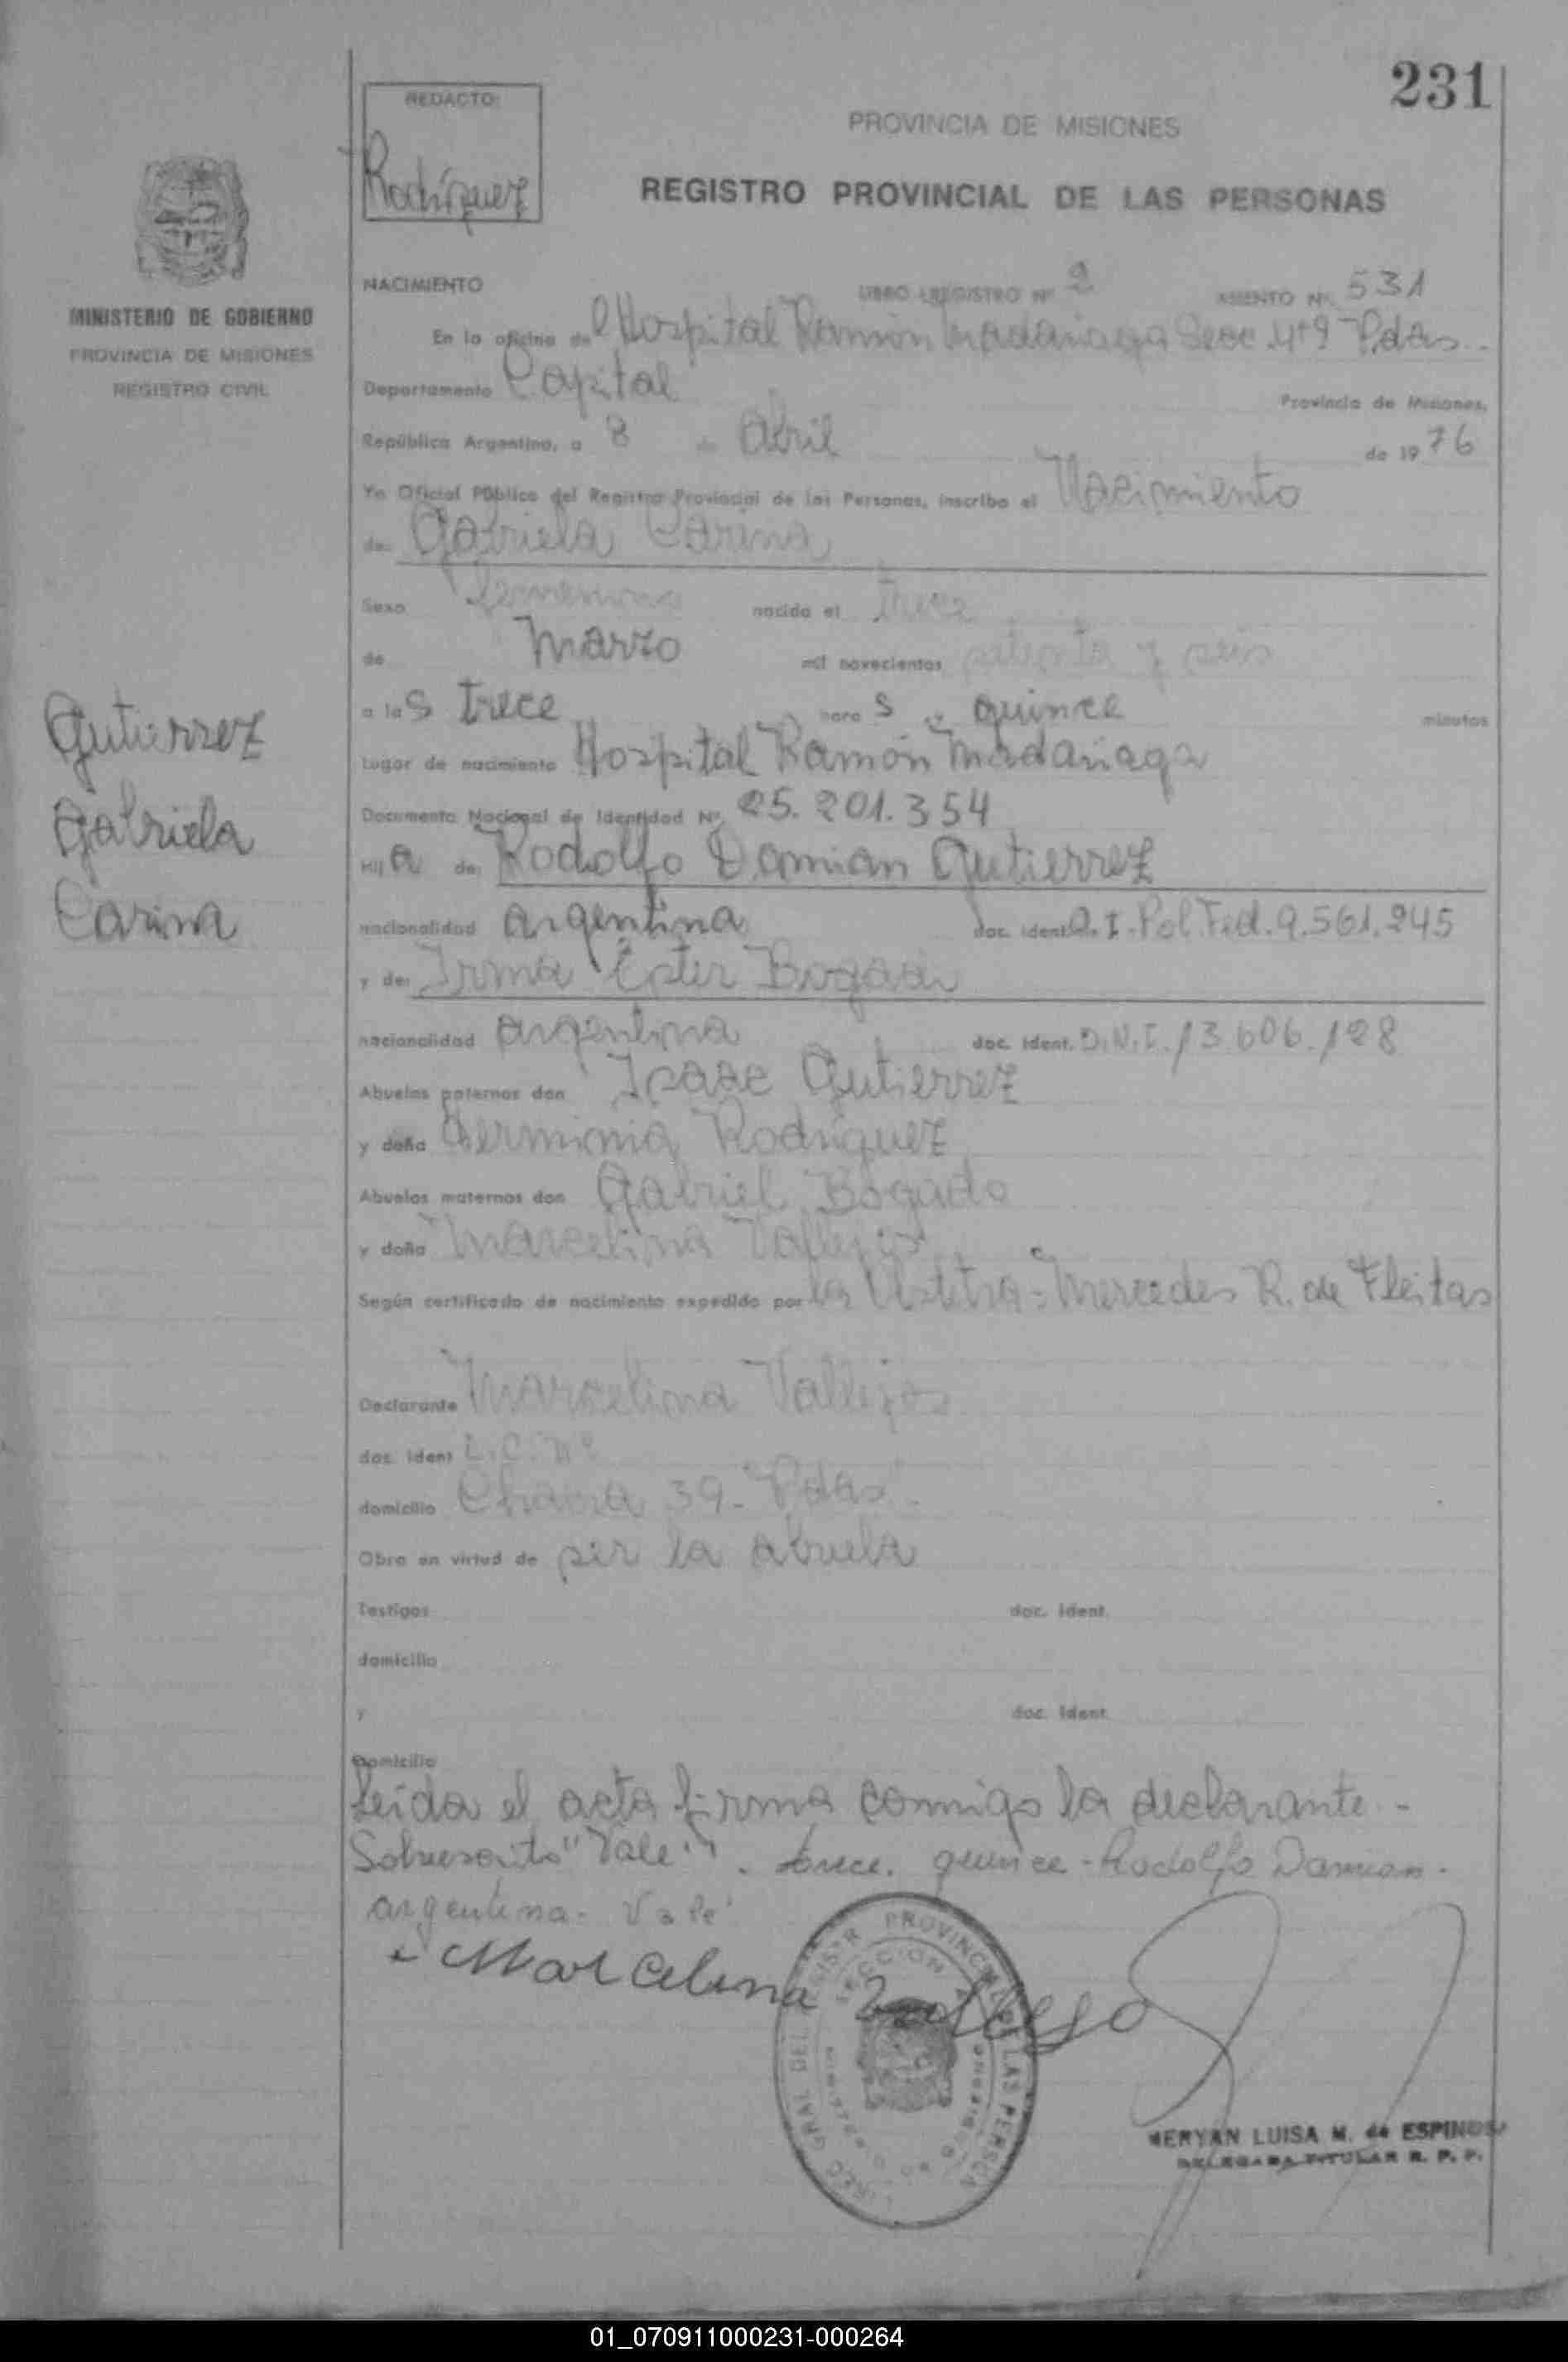 231
REDACTO:
Rodríguez
PROVINCIA DE MISIONES
REGISTRO PROVINCIAL DE LAS PERSONAS
MINISTERIO DE GOBIERNO
PROVINCIA DE MISIONES
REGISTRO CIVIL
NACIMIENTO LIBRO REGISTRO Nº 2 ASIENTO Nº 531
En la oficina del Hospital Ramón Madariaga Secc 4ta Pdas.
Departamento Capital Provincia de Misiones,
República Argentina, a 8 de Abril de 1976
Yo Oficial Público del Registro Provincial de las Personas, inscribo el Nacimiento
de: Gabriela Carina
Sexo femenino nacido el trece
de Marzo mil novecientos setenta y seis
a las trece hora s y quince minutos
Lugar de nacimiento Hospital Ramón Madariaga
Documento Nacional de Identidad Nº 25.201.354
Hija de: Rodolfo Damian Gutierrez
nacionalidad argentina doc. Ident. C.I. Pol. Fed. 9.561.245
y de: Irma Ester Bogado
nacionalidad argentina doc. Ident. D.N.I. 13.606.128
Abuelos paternos don Isaac Gutierrez
y doña Herminia Rodríguez
Abuelos maternos don Gabriel Bogado
y doña Marcelina Vallejos
Según certificado de nacimiento expedido por la Obstetra: Mercedes R. de Fleitas
Gutierrez
Gabriela
Carina
Declarante Marcelina Vallejos
doc. Ident L.C. Nº
domicilio Chacra 39- Pdas.
Obra en virtud de ser la abuela
Testigos doc. Ident.
domicilio
y doc. Ident.
Domicilio
Leida el acta firma conmigo la declarante.-
Sobrescrito "Vale". trece. quince - Rodolfo Damian.
argentina- Vale
Marcelina Vallejo
MERYAN LUISA M. de ESPINOSA
DELEGADA TITULAR R. P. P.
01_070911000231-000264